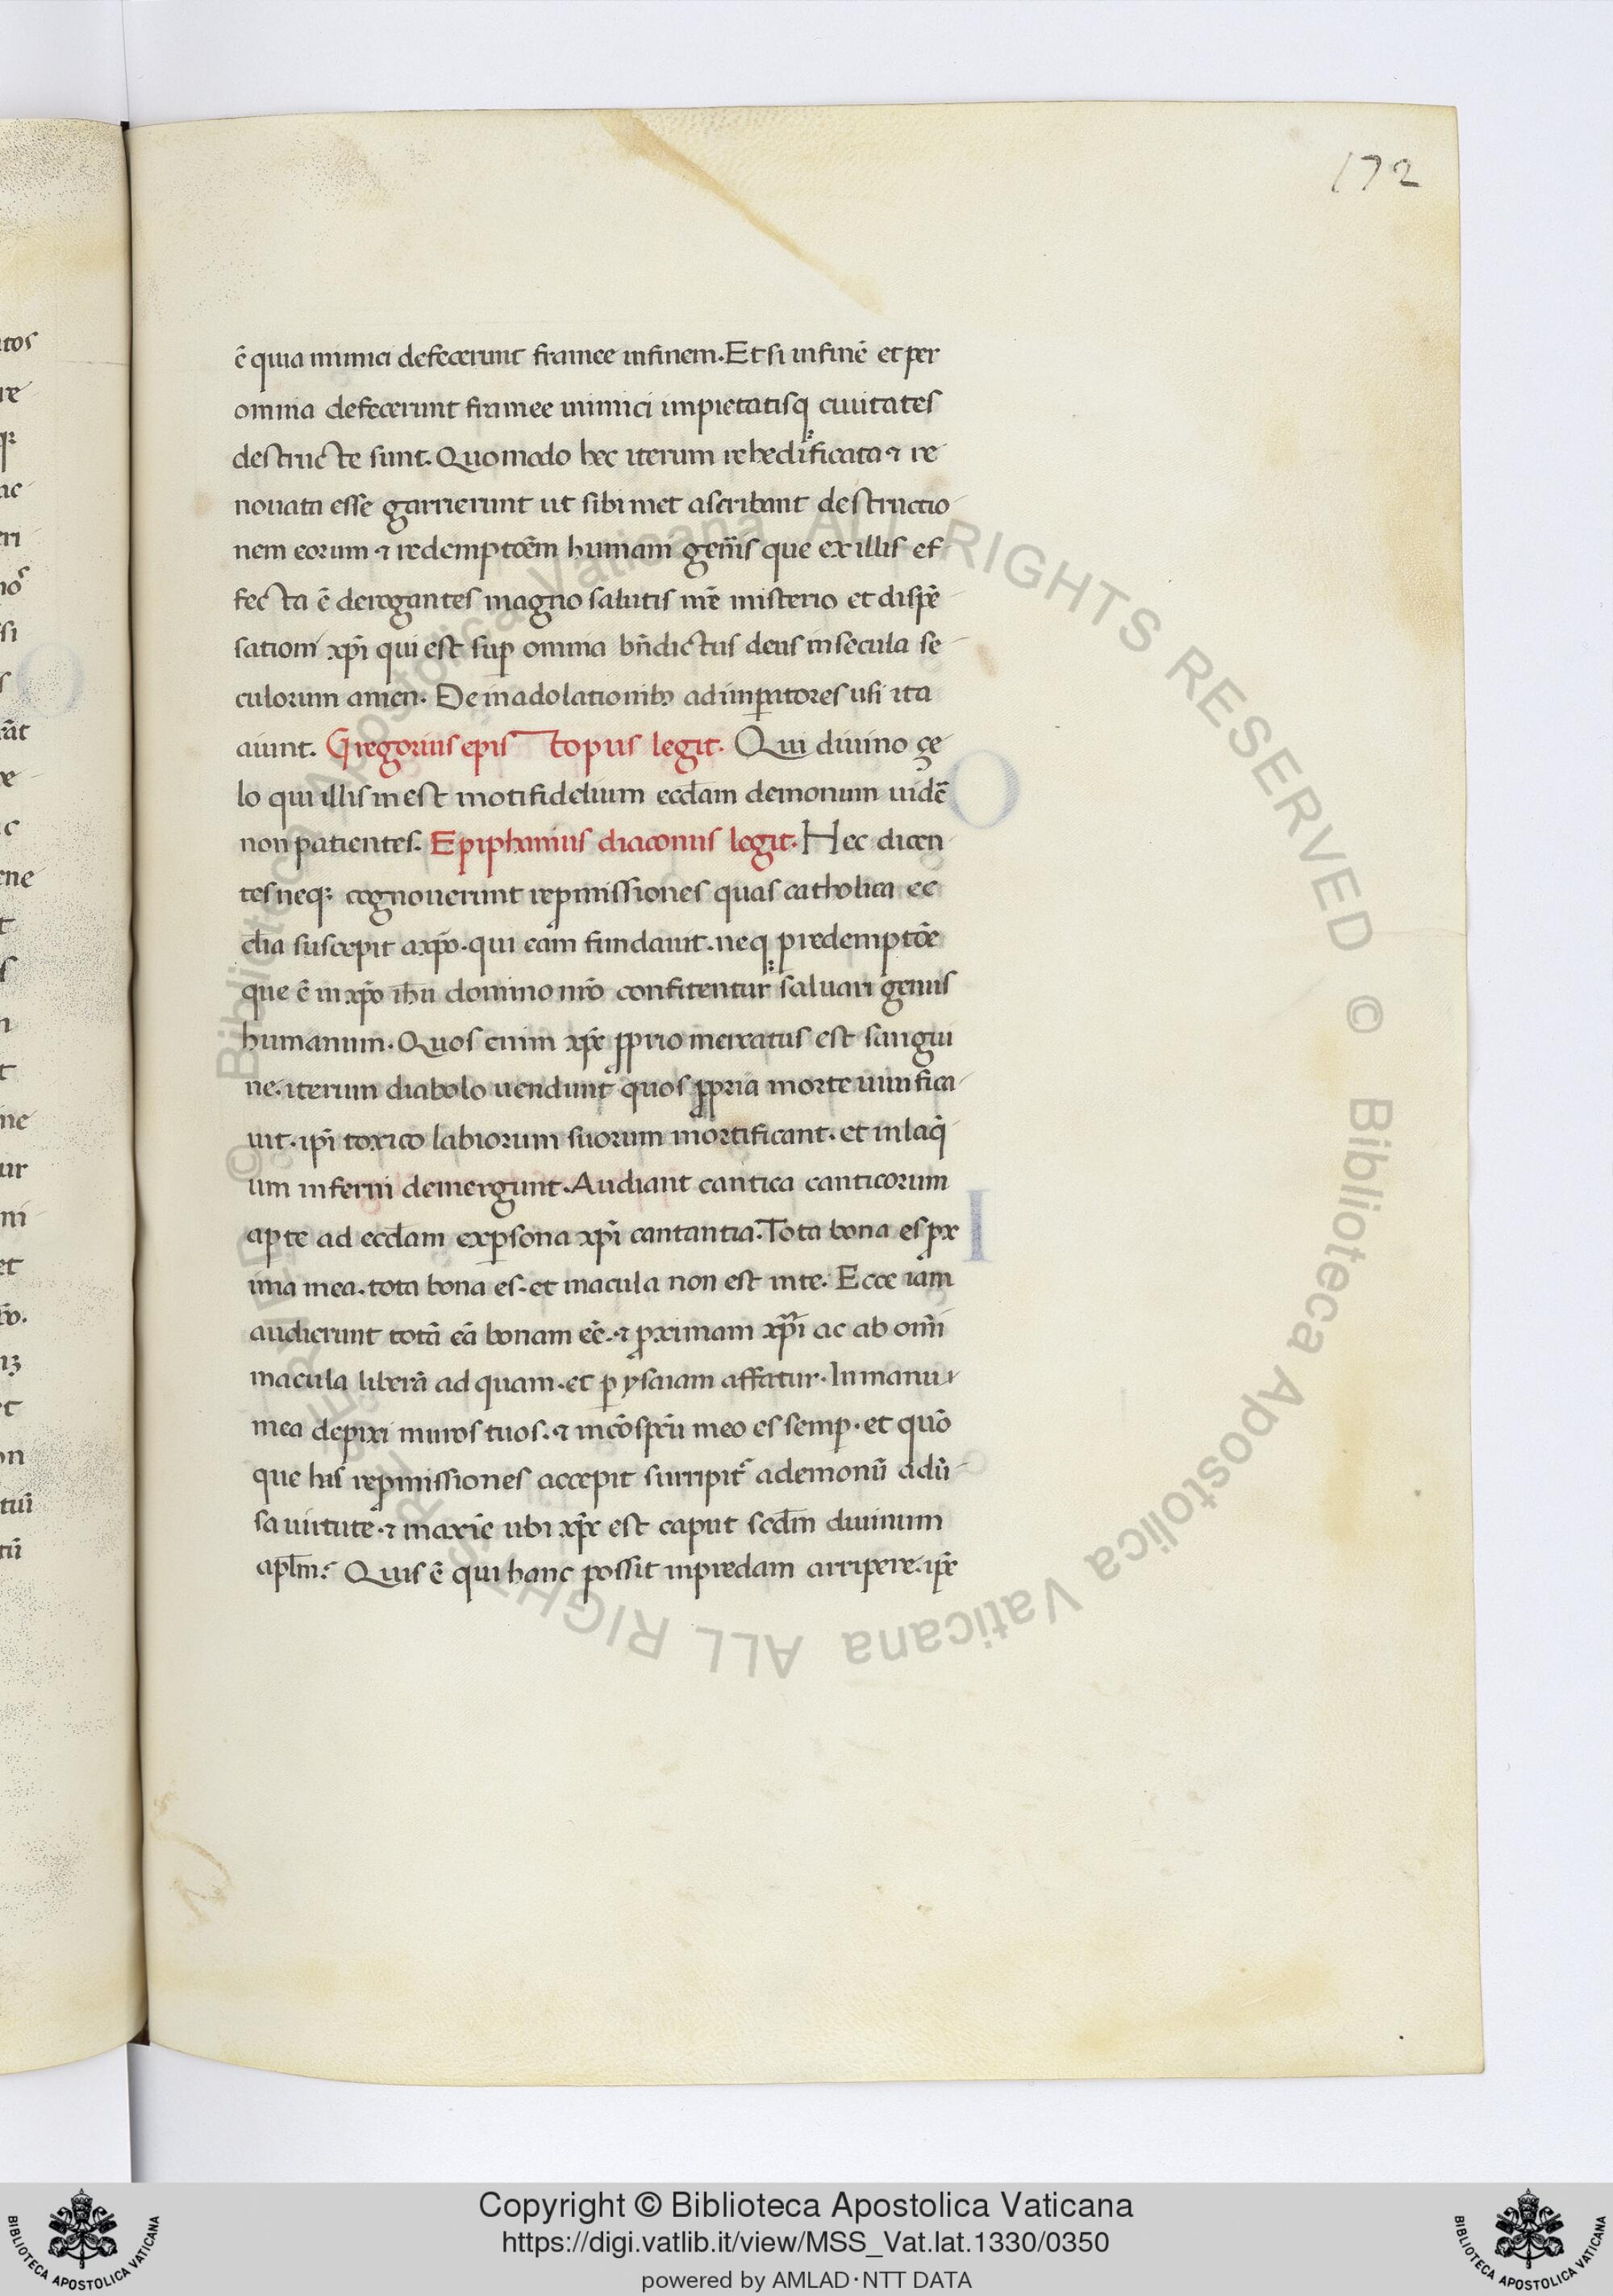 172
ē quia inimici defecerunt framee infinem. Et si infinē et per
omnia defecerunt framee inimici impietatisq; ciuitates
destructe sunt. Quomodo hec iterum rehedificata ⁊ re
nouata esse garrierunt ut sibimet ascribant destructio
nem eorum ⁊ redemptōem humani geñis que ex illis ef
fecta ē derogantes magno salutis nr̄e misterio et dispē
sationi xp̄i qui est sup omnia bn̄dictus deus in secula se
culorum amen. De in adolationib; ad imꝑatores usi ita
aiunt. Gregorius epis topus legit. Qui diuino çe
lo qui illis inest moti fidelium eccl̄am demonum uidē
non patientes. Epiphanius diaconus legit. Hec dicen
tes neq; cognouerunt repmissiones quas catholica ec
cl̄ia suscepit a xp̄o. qui eam fundauit. neq; p redemptōe
que ē in xp̄o ih̄u domino nr̄o confitentur saluari genus
humanum. Quos enim xp̄s ꝓprio mercatus est sangui
ne. iterum diabolo uendunt quos ꝓpria morte uiuifica
uit. ip̄i toxico labiorum suorum mortificant. et in laq̄
um inferni demergunt. Audiant cantica canticorum
apte ad eccl̄am ex ꝑsona xp̄i cantantia. Tota bona es ꝓx
ima mea. tota bona es. et macula non est in te. Ecce iam
audierunt totā eā bonam eē. ⁊ ꝓximam xp̄i ac ab om̄i
macula liberā ad quam. et ꝑ ysaiam affatur. In manu
mea depixi muros tuos. ⁊ in cōspc̄u meo es semp. et quō
que has repmissiones accepit surripit᷑ a demonū aduˀ
sa uirtute. ⁊ maxīe ubi xp̄s est caput scd̄m diuinum
apl̄m. Quis ē qui hanc possit in predam arripere. ip̄e
Copyright © Biblioteca Apostolica Vaticana
https://digi.vatlib.it/view/MSS_Vat.lat.1330/0350
powered by AMLAD·NTT DATA